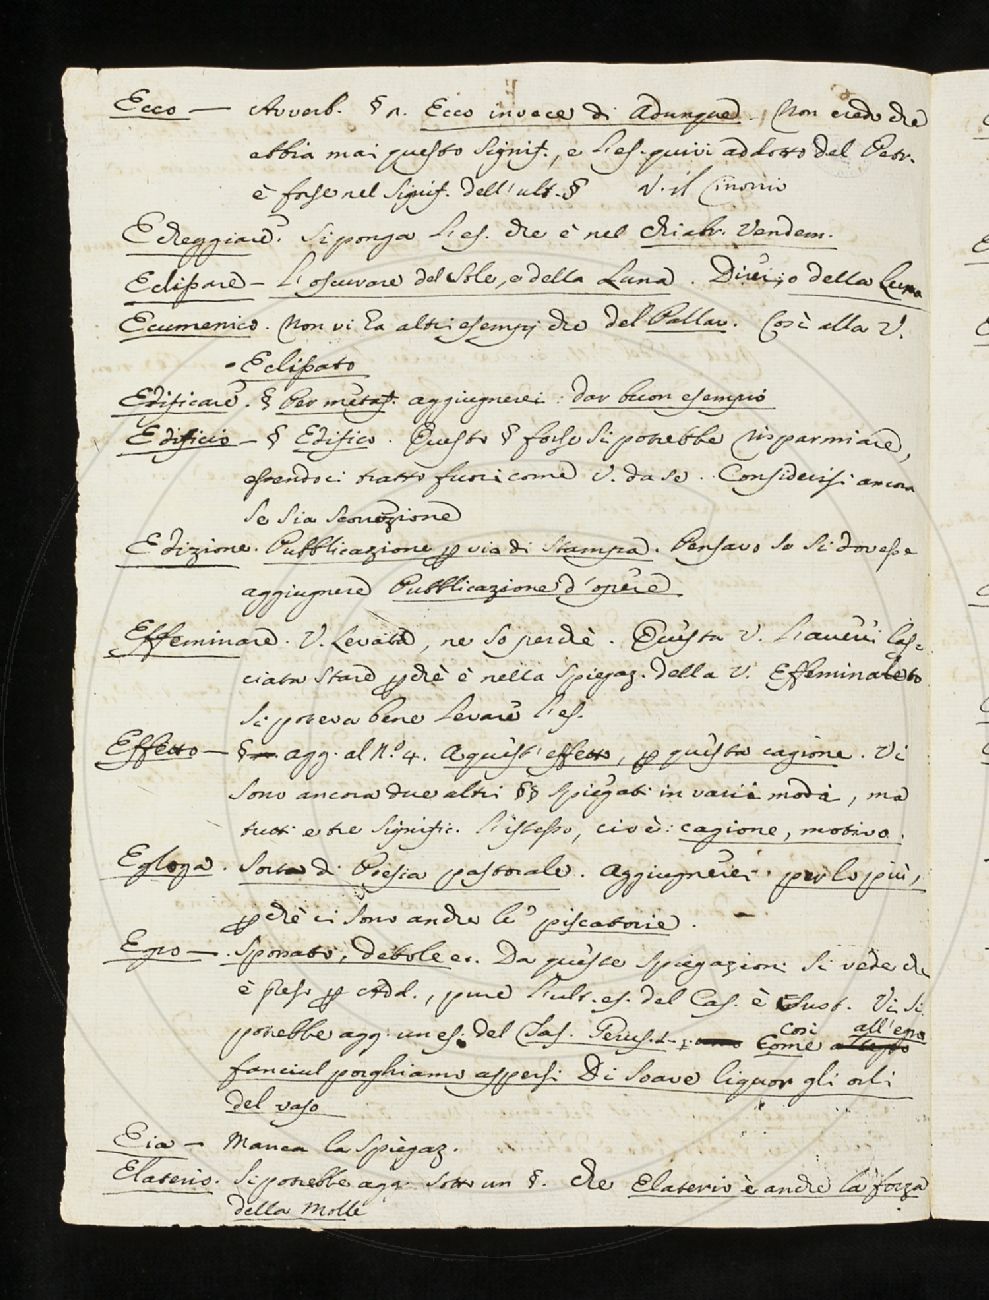 Ecco — Avverb. § 1. Ecco invece di Adunque. Non credo che
abbia mai questo signif., e l'es. quivi addotto del Petr.
è forse nel signif. dell'ult. § V. il Cinonio
Echeggiare. Si ponga l'es. che è nel Chiabr. Vendem.
Eclissare — L'oscurare del Sole, e della Luna. Direi, o della Luna
Ecumenico. Non vi ha altri esempj che del Pallav. Così alla V.
Eclissato
Edificare. § Per metaf. aggiugnerei: dar buon esempio
Edificio — § Edifico. Questo § forse si potrebbe risparmiare,
essendoci tratto fuori come V. da se. Considerisi ancora
se sia scorrezione
Edizione. Pubblicazione per via di stampa. Pensavo se si dovesse
aggiugnere Pubblicazione d'opere
Effeminare. V. Levata, ne so perchè. Questa V. l'averei las-
ciata stare perchè è nella spiegaz. della V. Effeminato
si poteva bene levare l'es.
Effetto — § agg. al N.º 4. A quest'effetto, per questa cagione. Vi
sono ancora due altri §§ spiegati in varii modi, ma
tutti e tre signific. l'istesso, cioè: cagione, motivo.
Egloga. Sorta di Poesia pastorale. Aggiugnerei per lo più,
perchè ci sono anche le piscatorie.
Egro — Spossato, debole ec. Da queste spiegazioni si vede che
è preso per Add., pure l'ult. es. del Cas. è Sust. Vi si
potrebbe agg. un es. del Tas. Gerus. 1. Così all'egro
fanciul porghiamo aspersi Di soave liquor gli orli
del vaso
Eia — Manca la spiegaz.
Elaterio. Si potrebbe agg. sotto un §. che Elaterio è anche la forza
della Molle